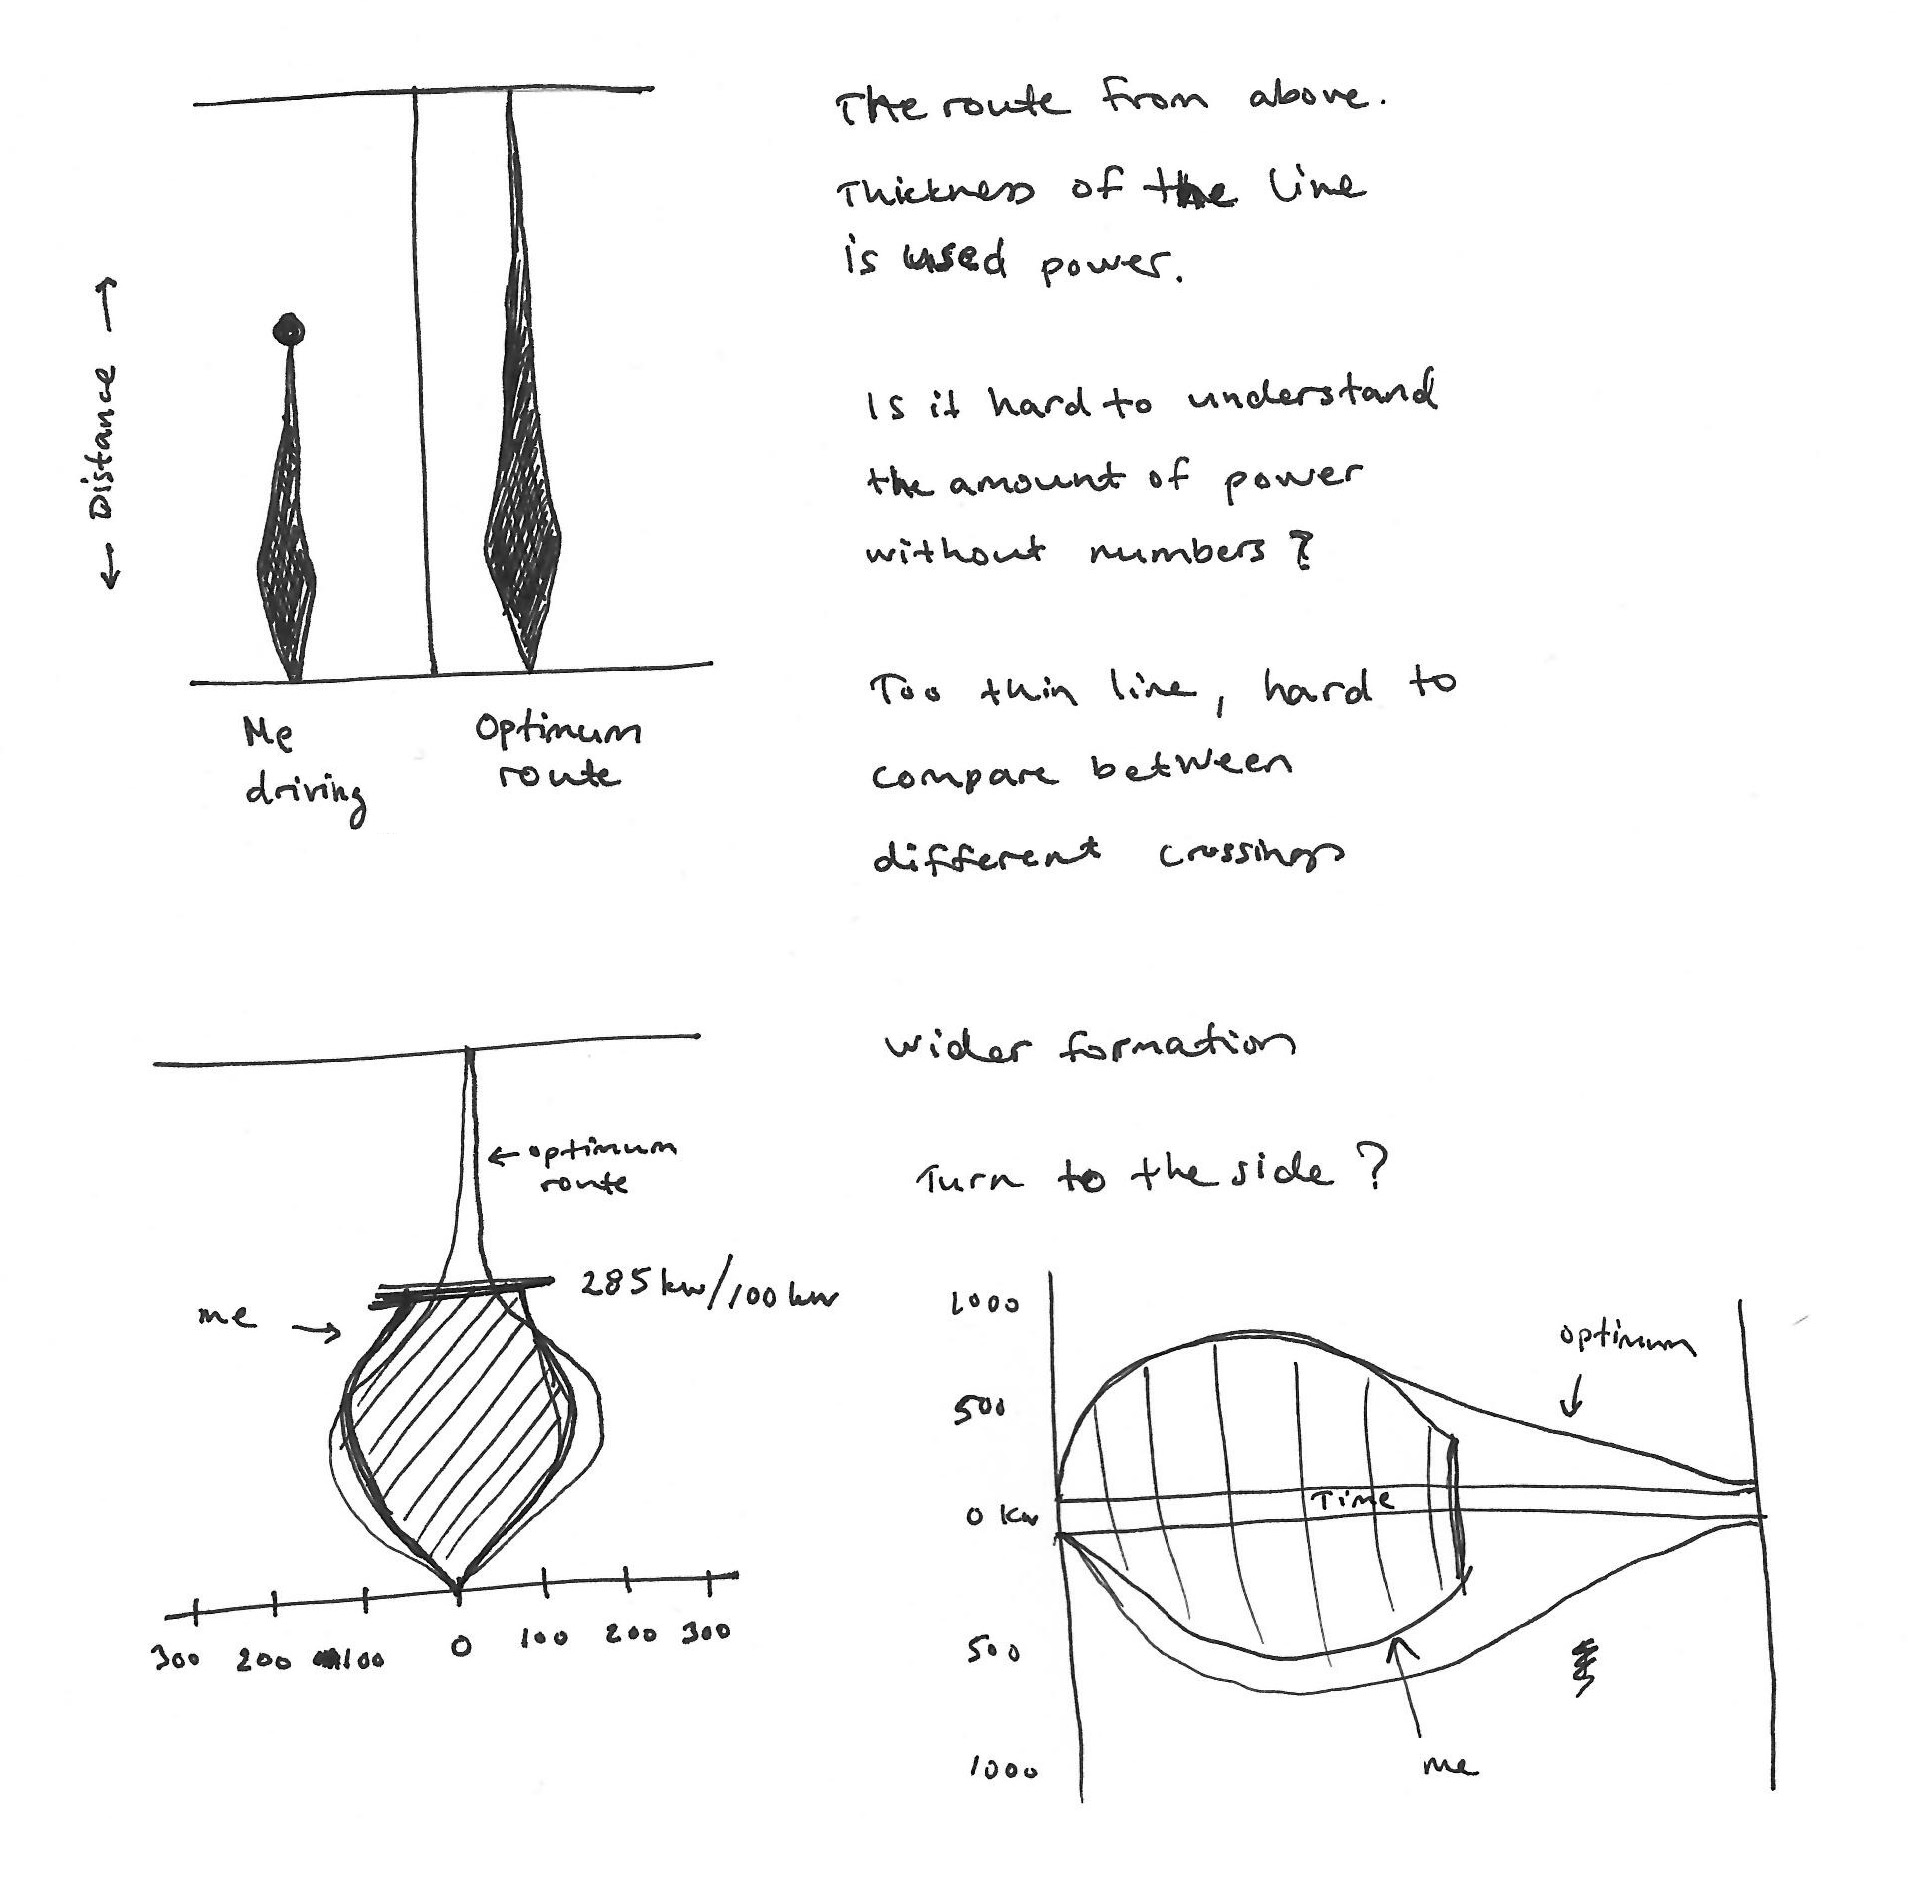 The route from above.
Thickness of the line
is used power.
← Distance →
Is it hard to understand
the amount of power
without numbers?
Me
driving
Optimum
route
Too thin line, hard to
compare between
different crossings
wider formation
← optimum
route
Turn to the side?
285 kw/100 kw
me →
300 200 100 0 100 200 300
1000
optimum
500
Time
0 kw
500
1000
me